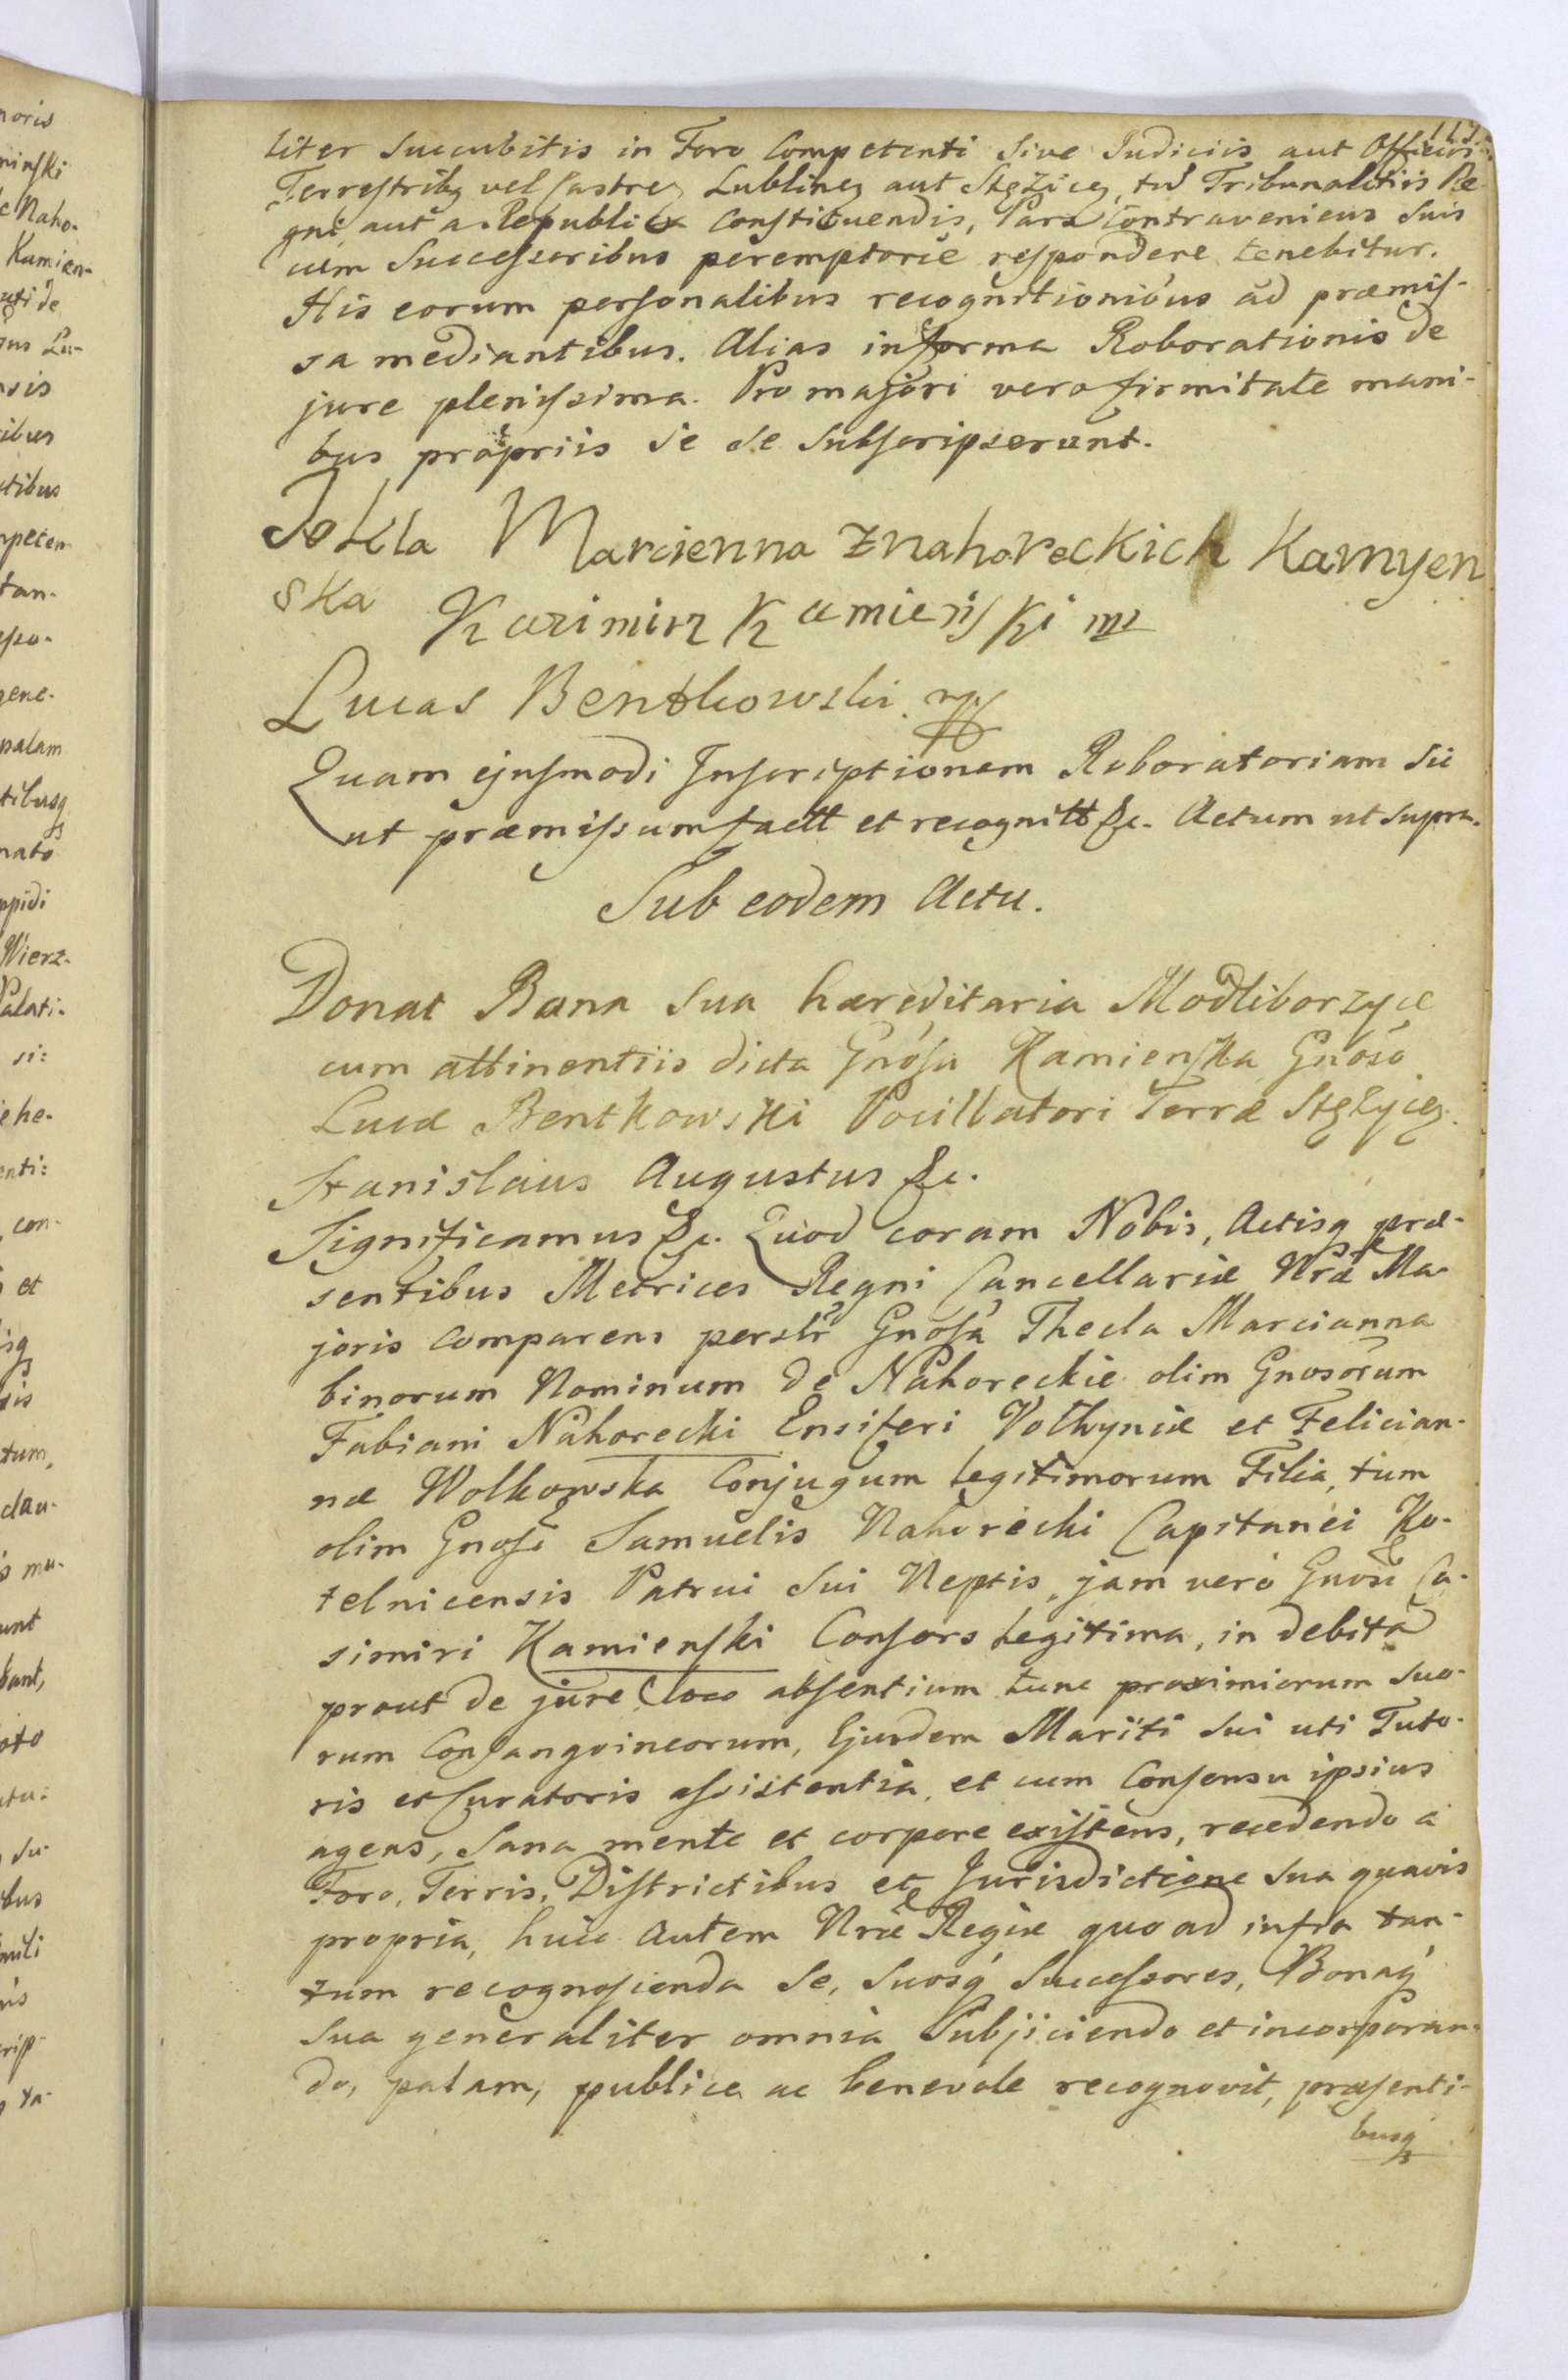 liter Succubitis in Foro Competenti Sive Judiciis aut Officiis
Terrestribq vel Castreq Lublineq aut Stęziceq, tũ Tribunalitiis Re-
gni, aut a Republica Constituendis, Pars Contraveniens Suis
cum Successoribus peremptorie respondere tenebitur.
His eorum personalibus recognitionibus ad præmis-
sa mediantibus. Alias in forma Roborationis de
jure plenissima. Pro majori vero firmitate mani-
bus propriis Se se Subscripserunt.
Tekla Marcienna Znahoreckich Kamyen
ska Kazimirz Kamieński mp
Lucas Bentkowski mp
Quam ejusmodi Inscriptionem Roboratoriam Sic
ut præmissum factt et recognitt &c. Actum ut supra.
Sub eodem Actu.
Donat Bona Sua hæreditaria Modliborzyce
cum attinentiis dicta Gnosa Kamienska Gnoso
Lucæ Bentkowski Pocillatori Terræ Stężyceq.
Stanislaus Augustus &c.
Significamus &c. Quod coram Nobis, Actisq præ-
sentibus Metrices Regni Cancellariæ Nræ Ma-
joris Comparens persltr Gnosa Thecla Marcianna
binorum Nominum de Nahoreckie olim Gnosorum
Fabiani Nahorecki Ensiferi Volhyniæ et Felician-
næ Wolkowska Conjugum legitimorum Filia, tum
olim Gnosi Samuelis Nahorecki Capitanei Ko-
telnicensis Patrui Sui Neptis, jam vero Gnosi Ca-
simiri Kamienski Consors Legitima, in debita
prout de jure loco absentium tunc proximiorum Suo-
rum Consangvineorum, Ejusdem Mariti Sui uti Tuto-
ris et Curatoris assistentia, et cum Consensu ipsius
agens, Sana mente et corpore existens, recedendo a
Foro, Terris, Districtibus et Jurisdictione Sua quavis
propria, huic autem Nræ Regiæ quo ad infra tan-
tum recognoscenda Se, Suosq Successores, Bonaq
Sua generaliter omnia Subjiciendo et incorporan-
do, palam, publice ac benevole recognovit, præsenti-
busq